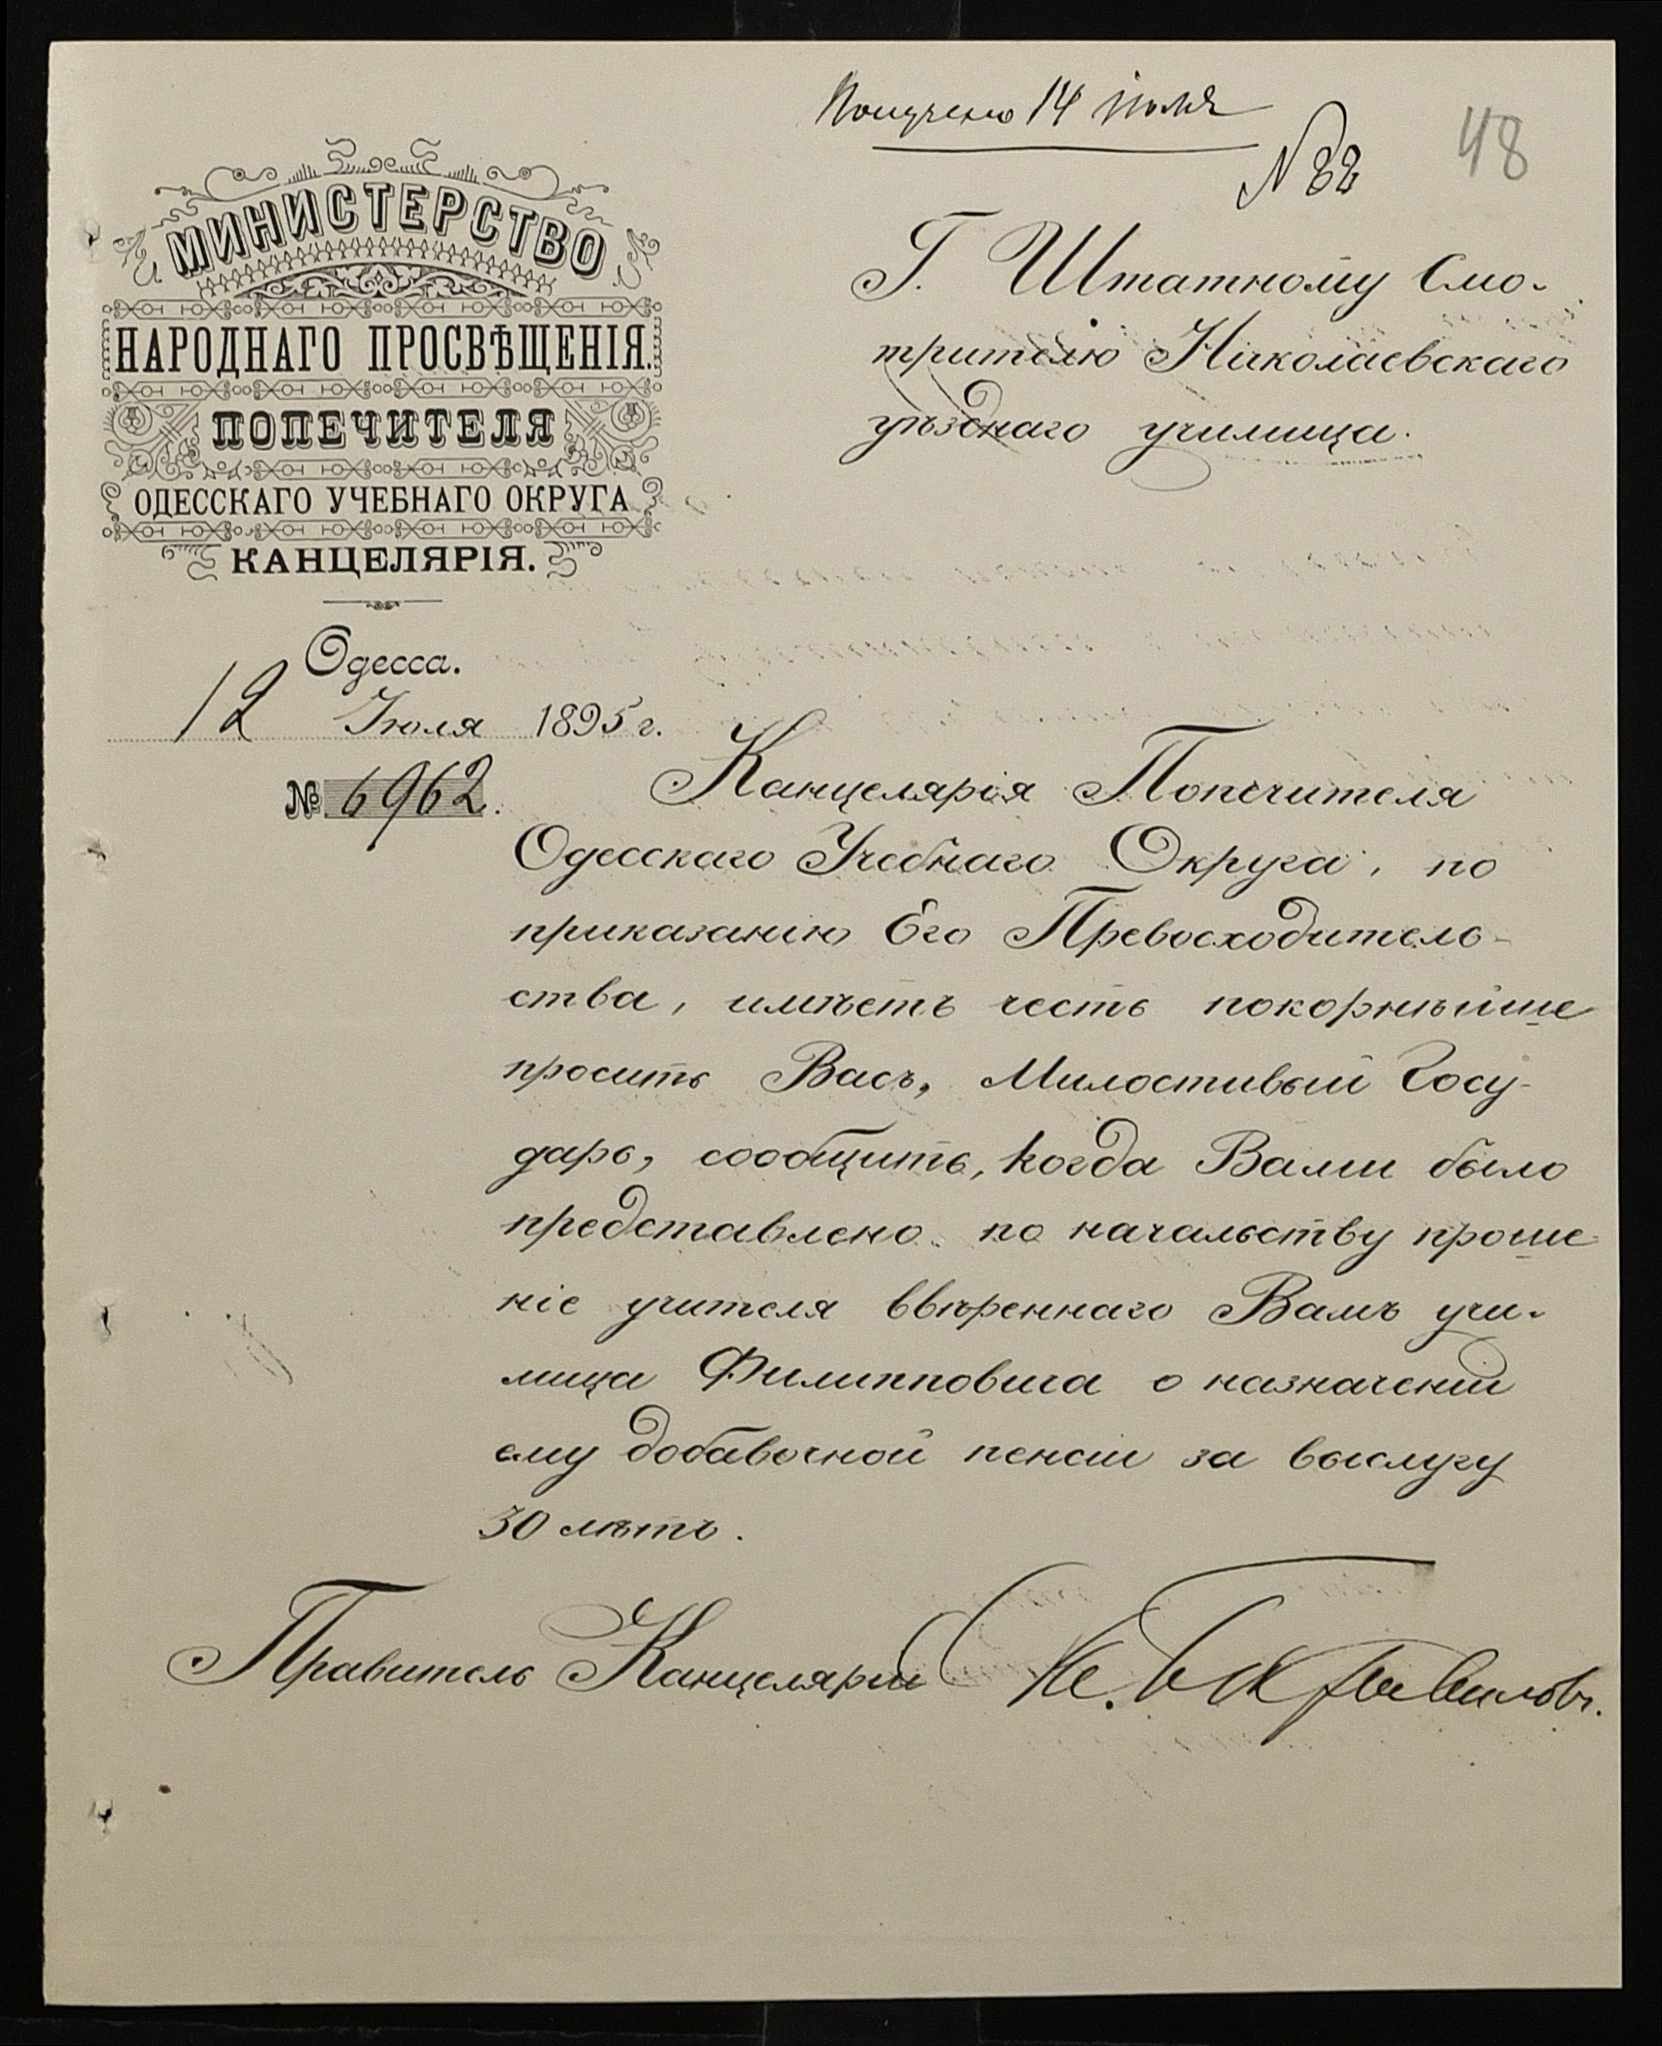 Получено 14 июля
№ 88
48
МИНИСТЕРСТВО
НАРОДНАГО ПРОСВѢЩЕНІЯ.
ПОПЕЧИТЕЛЯ
ОДЕССКАГО УЧЕБНАГО ОКРУГА
КАНЦЕЛЯРІЯ.
Одесса.
12 Июля 1895 г.
№ 6962.
Г. Штатному Смо-
трителю Николаевскаго
уѣзднаго училища.
Канцелярія Попечителя
Одесскаго Учебнаго Округа, по
приказанію Его Превосходитель-
ства, имѣетъ честь покорнѣйше
просить Васъ, Милостивый Госу-
дарь, сообщить, когда Вами было
представлено по начальству проше-
ніе учителя ввѣреннаго Вамъ учи-
лища Филипповича о назначеніи
ему добавочной пенсіи за выслугу
30 лѣтъ.
Правитель Канцеляріи